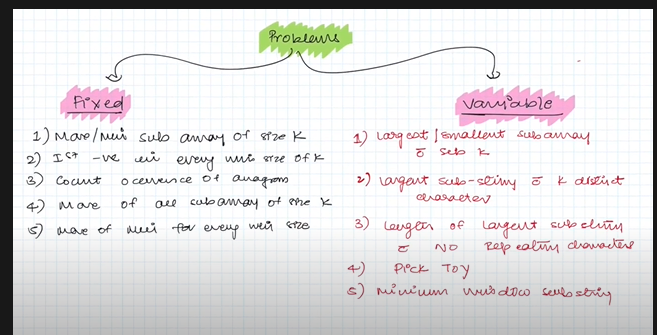 Problems
Fixed
1) Max/Min sub array of size K
2) Ist -ve in every win size of K
3) Count occurence of anagram
4) Max of all subarray of size K
5) Max of min for every win size
Variable
1) Largest/smallest subarray
c̄ sum K
2) Largest sub-string c̄ K distinct
character
3) Length of largest substring
c̄ NO Repeating characters
4) Pick Toy
5) Minimum window substring